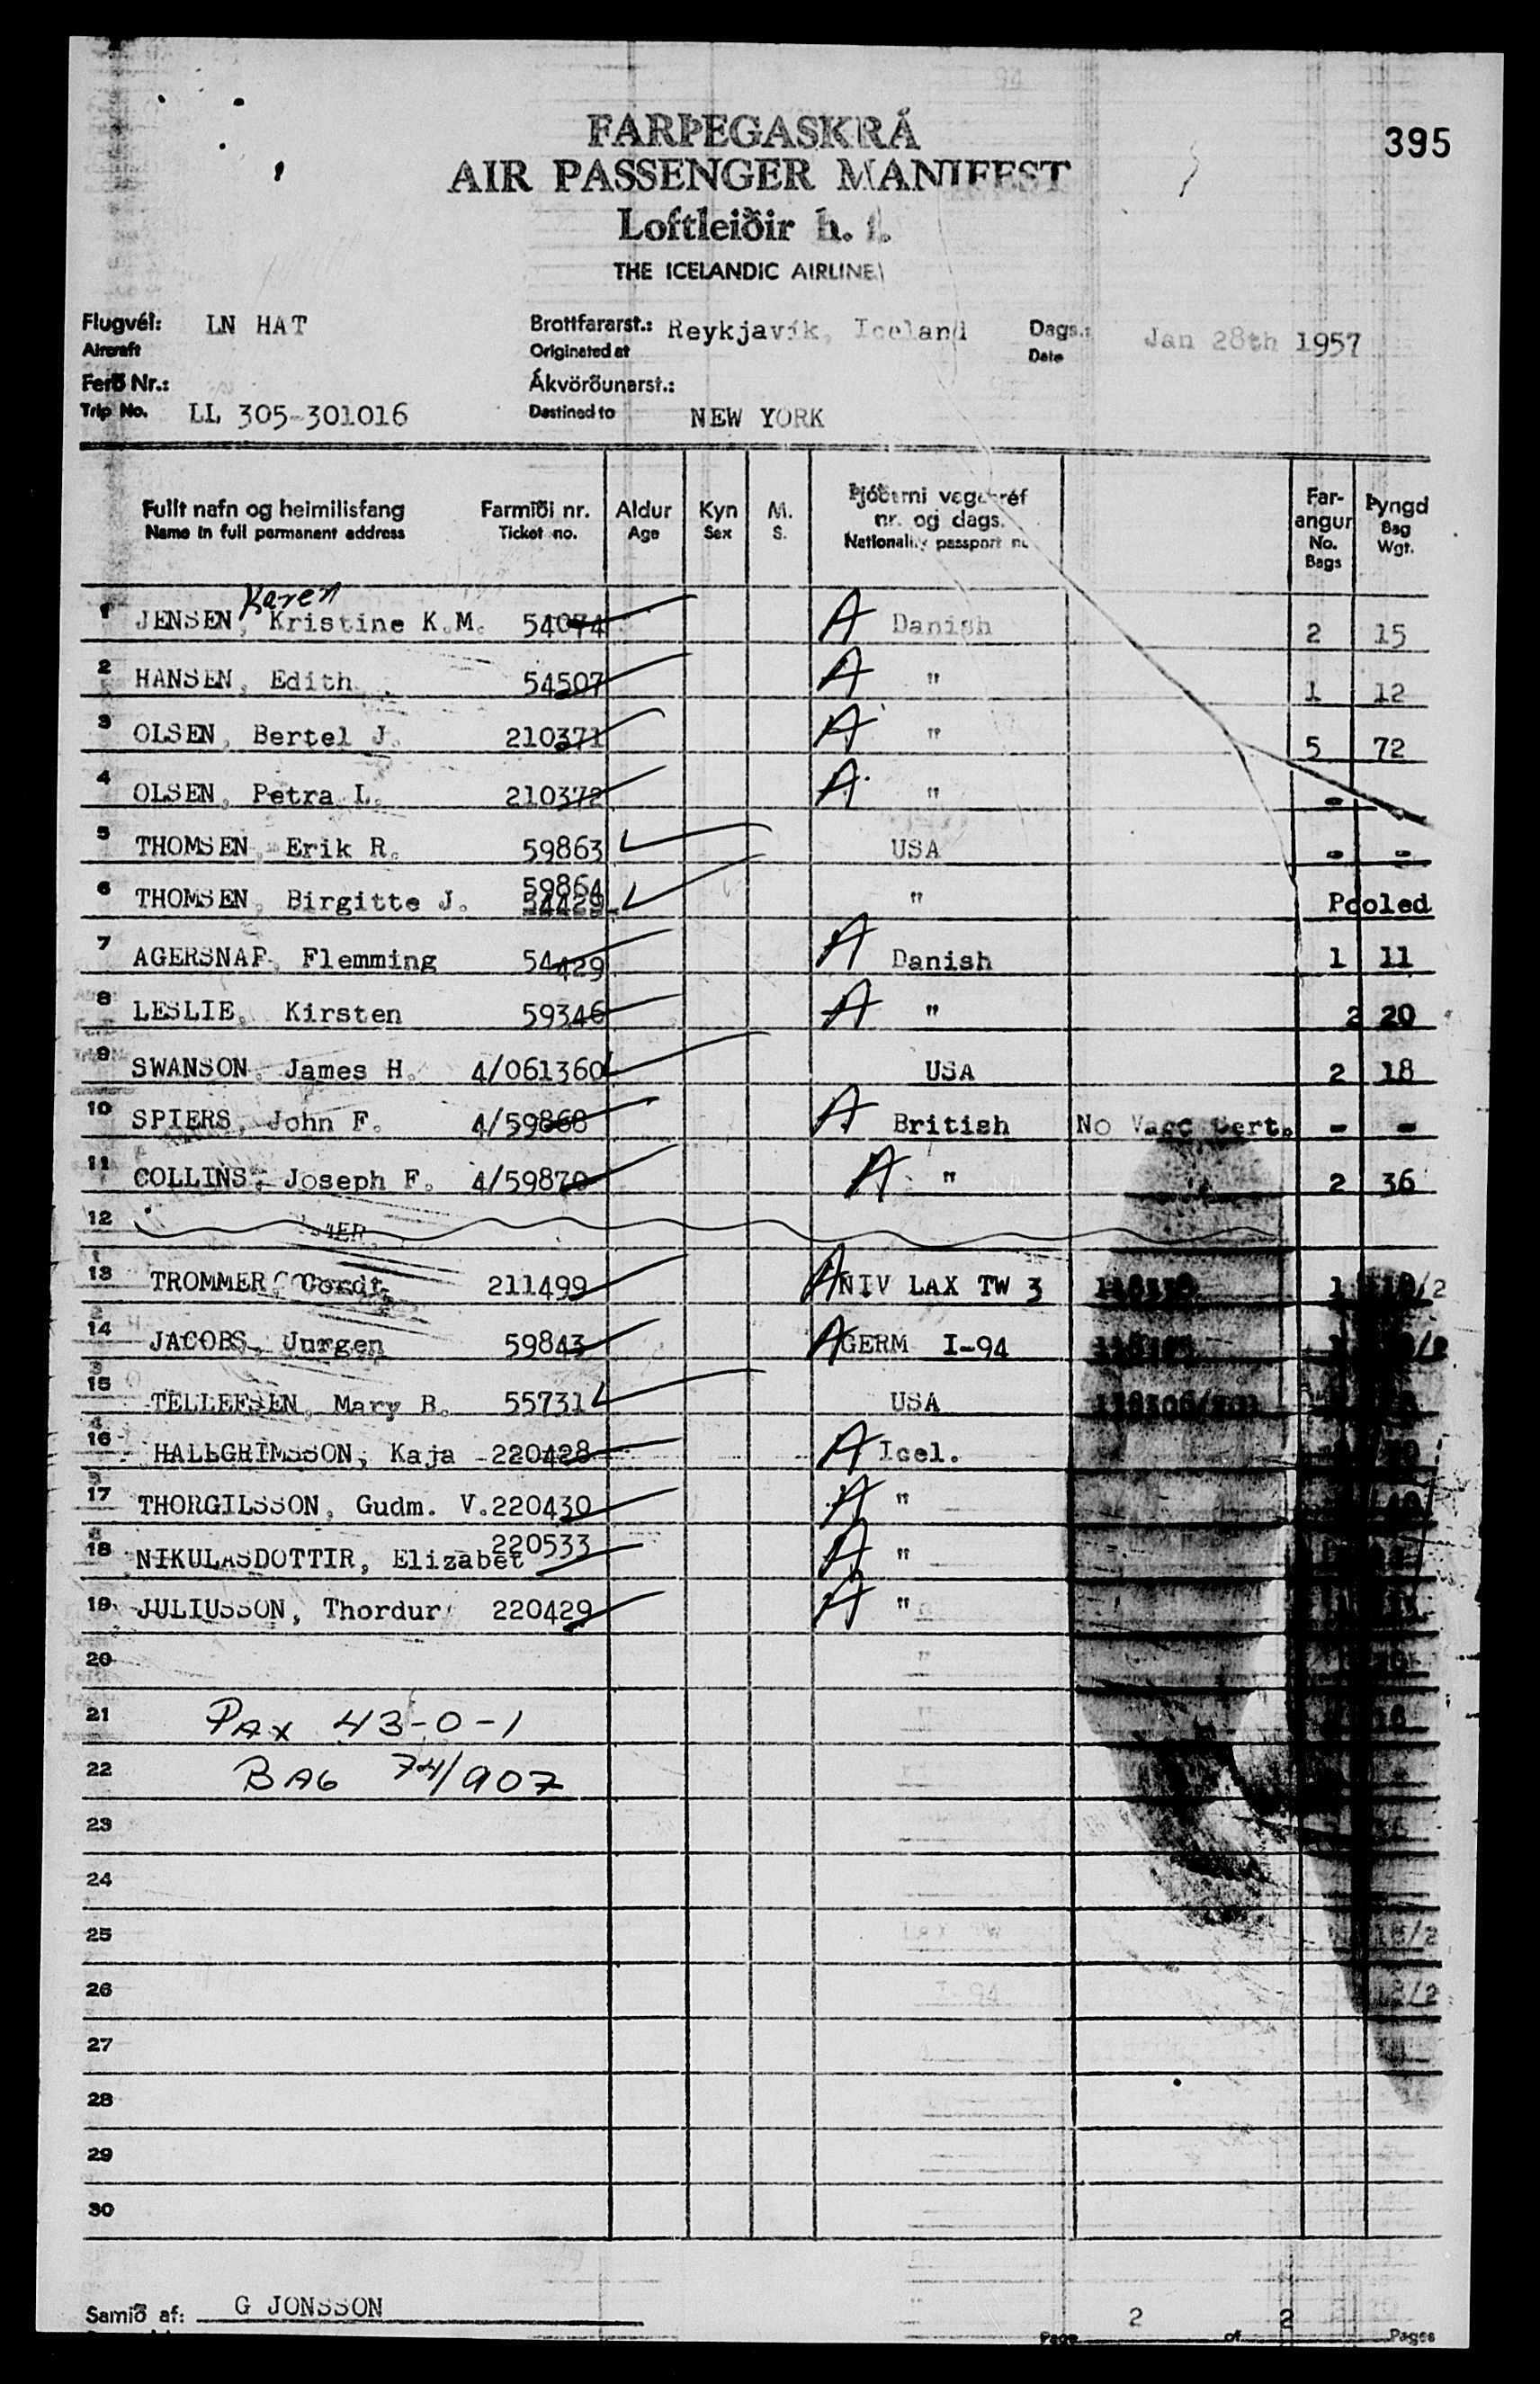 395
FARÞEGASKRÁ
AIR PASSENGER MANIFEST
Loftleiðir h. f.
THE ICELANDIC AIRLINE
Flugvél: LN HAT Brottfararst.: Reykjavík, Iceland Dags.: Jan 28th 1957
Aircraft Originated at Date
Ferð Nr.: Ákvörðunarst.:
Trip No. LL 305-301016 Destined to NEW YORK
Fullt nafn og heimilisfang Farmiði nr. Aldur Kyn M. Þjóðerni vegabréf Far- Þyngd
Name in full permanent address Ticket no. Age Sex S. nr. og dags. angur Bag
Nationality passport no. No. Wgt.
Bags
Karen
1 JENSEN, Kristine K.M. 54074 A Danish 2 15
2 HANSEN, Edith 54507 A " 1 12
3 OLSEN, Bertel J. 210371 A " 5 72
4 OLSEN, Petra L. 210372 A " -
5 THOMSEN, Erik R. 59863 USA - -
59864
6 THOMSEN, Birgitte J. 54429 " Pooled
7 AGERSNAP, Flemming 54429 A Danish 1 11
8 LESLIE, Kirsten 59346 A " 2 20
9 SWANSON, James H. 4/061360 USA 2 18
10 SPIERS, John F. 4/59868 A British No Vacc Cert. - -
11 COLLINS, Joseph F. 4/59870 A " 2 36
12
1
13 TROMMER, Cordt 211499 A NIV LAX TW 3 1 18/2
2
14 JACOBS, Jurgen 59843 A GERM I-94
3
15 TELLEFSEN, Mary B. 55731 USA
4
16 HALLGRIMSSON, Kaja 220428 A Icel.
5
17 THORGILSSON, Gudm. V. 220430 A "
6 220533
18 NIKULASDOTTIR, Elizabet A "
19 JULIUSSON, Thordur 220429 A "
20
21 PAX 43-0-1
22 BAG 74/907
23
24
25
26
27
28
29
30
Samið af: G JONSSON
Page 2 of 2 Pages